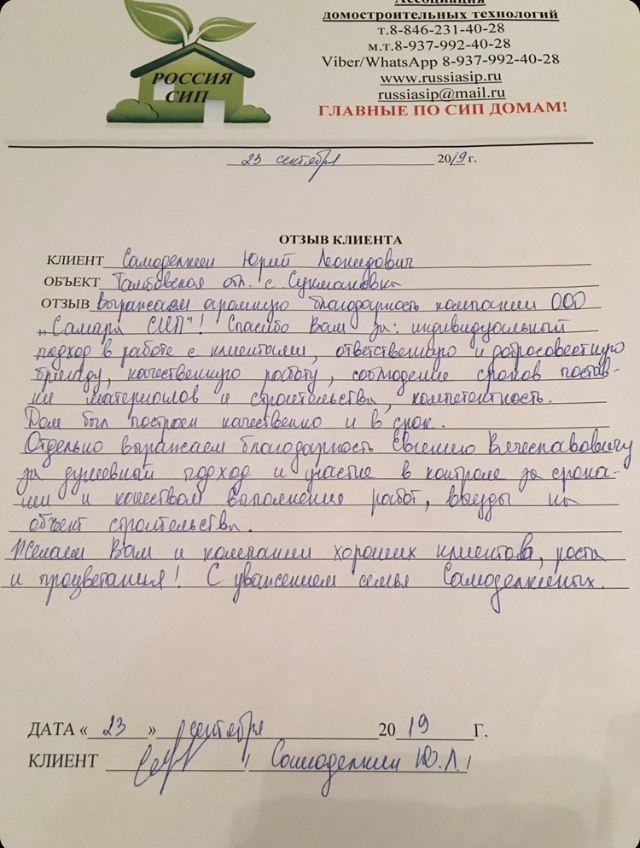 Ассоциация
домостроительных технологий
т.8-846-231-40-28
м.т.8-937-992-40-28
Viber/WhatsApp 8-937-992-40-28
www.russiasip.ru
russiasip@mail.ru
ГЛАВНЫЕ ПО СИП ДОМАМ!
РОССИЯ
СИП
23 сентября 2019г.
ОТЗЫВ КЛИЕНТА
КЛИЕНТ Самоделкин Юрий Леонидович
ОБЪЕКТ Тамбовская обл. с. Сукмановка
ОТЗЫВ Выражаем огромную благодарность компании ООО
„Самара СИП"! Спасибо Вам за: индивидуальный
подход в работе с клиентами, ответственную и добросовестную
бригаду, качественную работу, соблюдение сроков постав-
ки материалов и строительства, компетентность.
Дом был построен качественно и в срок.
Отдельно выражаем благодарность Евгению Вячеславовичу
за душевный подход и участие в контроле за срока-
ми и качеством выполнения работ, выезды на
объект строительства.
Желаем Вам и компании хороших клиентов, роста
и процветания! С уважением семья Самоделкиных.
ДАТА «23» сентября 2019 Г.
КЛИЕНТ / Самоделкин Ю.Л./